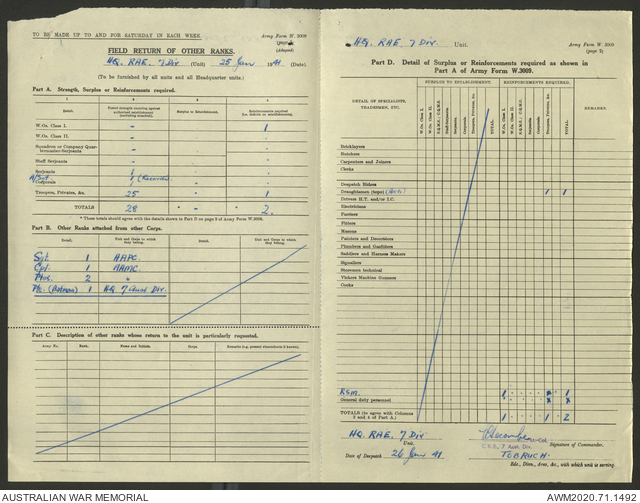 TO BE MADE UP TO AND FOR SATURDAY IN EACH WEEK.
Army Form W. 3009
(Adapted)
FIELD RETURN OF OTHER RANKS.
HQ. RAE. 7 DIV (Unit) 25 Jan 1941 (Date)
(To be furnished by all units and all Headquarter units.)
Part A. Strength, Surplus or Reinforcements required.
1 2 3 4
Detail. Posted strength counting against authorized establishment (including attached). Surplus to Establishment. Reinforcements required (i.e. deficits on establishment).
W.Os. Class I. - - 1
W.Os. Class II. - - -
Squadron or Company Quarter-master-Serjeants - - -
Staff Serjeants - - -
Serjeants 1 - -
Corporals 1 -
Troopers, Privates, &c. 25 - 1
TOTALS 28 * - * 2
* These totals should agree with the details shown in Part D on page 2 of Army Form W.3009.
Part B. Other Ranks attached from other Corps.
Detail. Unit and Corps to which they belong. Detail. Unit and Corps to which they belong.
Sgt. 1 AAPC.
Cpl. 1 AAMC.
Ptes. 2 "
Pte. (Batman) 1 HQ. 7 Aust Div.
Part C. Description of other ranks whose return to the unit is particularly requested.
Army No. Rank. Name and Initials. Corps. Remarks (e.g. present whereabouts if known).
HQ. RAE. 7 Div. Unit.
Army Form W. 3009
(page 2)
Part D. Detail of Surplus or Reinforcements required as shown in
Part A of Army Form W.3009.
SURPLUS TO ESTABLISHMENT. REINFORCEMENTS REQUIRED.
DETAIL OF SPECIALISTS, TRADESMEN, ETC.
W.Os. Class I.
W.Os. Class II.
S.Q.M.S.; C.Q.M.S.
Staff-Serjeants.
Serjeants.
Corporals.
Troopers, Privates, &c.
TOTAL.
W.Os. Class I.
W.Os. Class II.
S.Q.M.S.; C.Q.M.S.
Serjeants.
Corporals.
Troopers, Privates, &c.
TOTAL.
REMARKS.
Bricklayers
Butchers
Carpenters and Joiners
Clerks
Despatch Riders
Draughtsmen (topo) (Arch) 1 1
Drivers H.T. and/or I.C.
Electricians
Farriers
Fitters
Masons
Painters and Decorators
Plumbers and Gasfitters
Saddlers and Harness Makers
Signallers
Storemen technical
Vickers Machine Gunners
Cooks
RSM. 1 1
General duty personnel
TOTALS (to agree with Columns 3 and 4 of Part A.) 1 1 2
HQ. RAE. 7 DIV
Unit.
Lt-Col.
C.R.E., 7 Aust. Div.
Signature of Commander.
Date of Despatch 26 Jan 41
TOBRUCH.
Bde., Divn., Area, &c., with which unit is serving.
AUSTRALIAN WAR MEMORIAL
AWM2020.71.1492